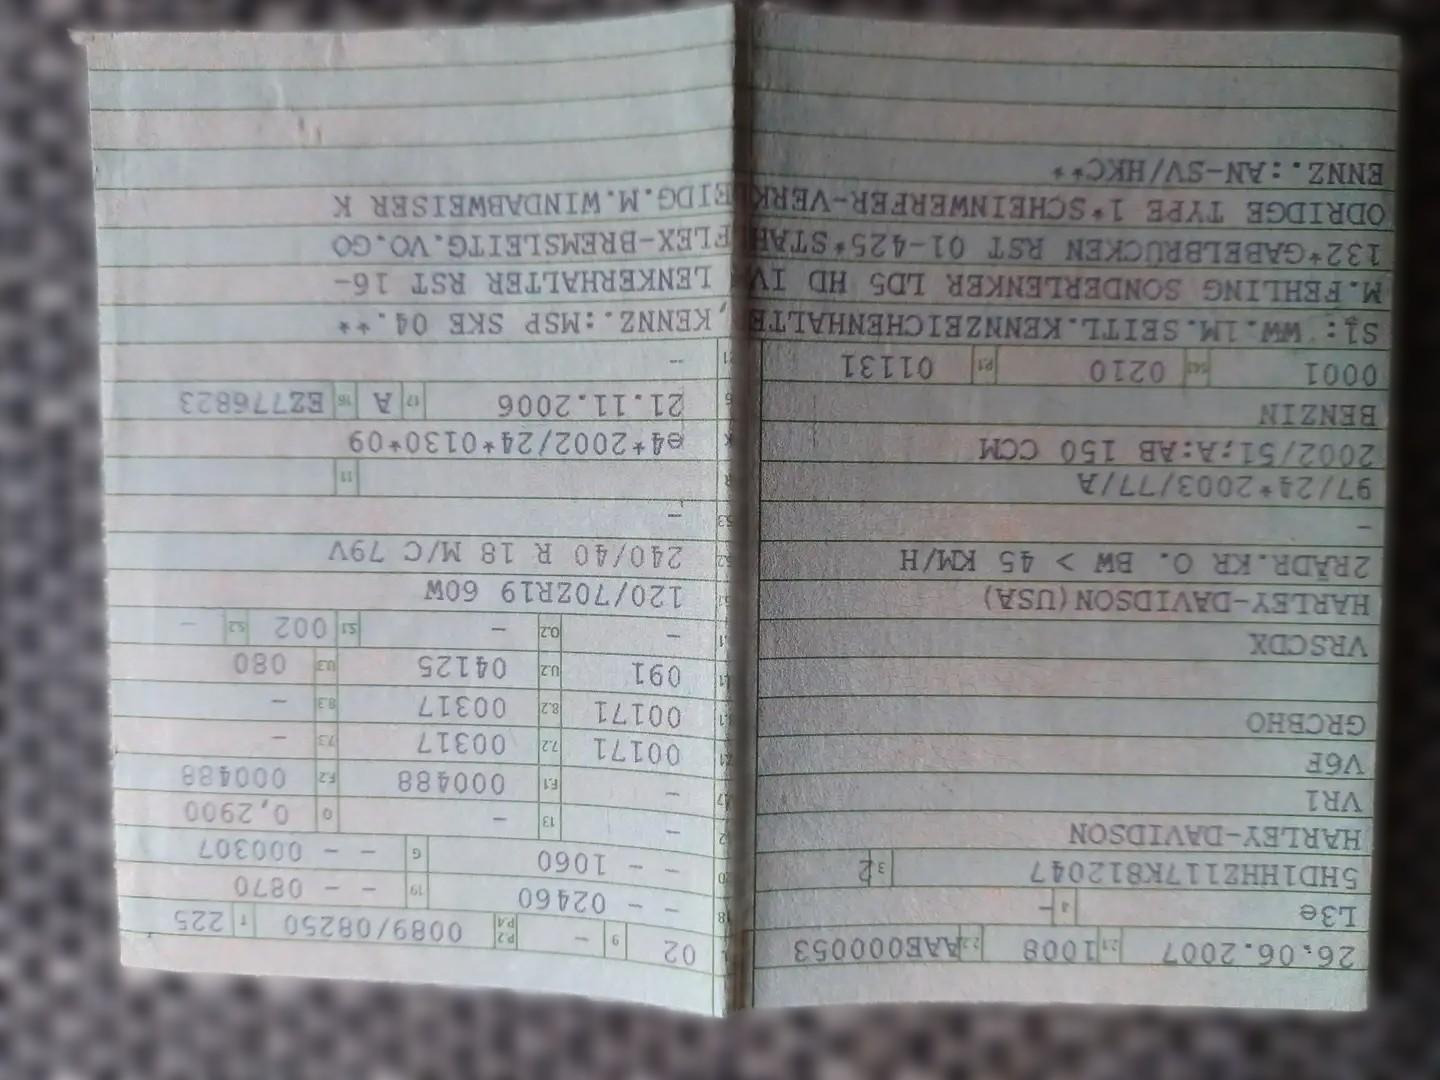 26.06.2007 2.1 1008 2.2 AAE000053
L3e 4 -
5HD1HHZ117K812047 3 2
HARLEY-DAVIDSON
VR1
V6F
GRCBHO
VRSCDX
HARLEY-DAVIDSON(USA)
2RÄDR.KR O. BW > 45 KM/H
-
97/24*2003/77/A
2002/51;A:AB 150 CCM
BENZIN
0001 14.1 0210 P.1 01131
02 9 - P.2 P.4 0089/08250 T 225
18 02460 - - 19 0870 - -
20 1060 - - G 000307 - -
- 13 - Q 0,2900
- F.1 000488 F.2 000488
00171 7.2 00317 7.3 -
00171 8.2 00317 8.3 -
091 U.2 04125 U.3 080
- O.2 - S.1 002 S.2 -
120/70ZR19 60W
240/40 R 18 M/C 79V
-
R 11
K e4*2002/24*0130*09
21.11.2006 17 A 16 EZ776823
21 --
S1: WW.1M.SEITL.KENNZEICHENHALTER,KENNZ.:MSP SKE 04.**
M.FEHLING SONDERLENKER LD5 HD IV* LENKERHALTER RST 16-
132*GABELBRÜCKEN RST 01-425*STAHLFLEX-BREMSLEITG.VO.GO
ODRIDGE TYPE 1*SCHEINWERFER-VERKLEIDG.M.WINDABWEISER K
ENNZ.:AN-SV/HKC**